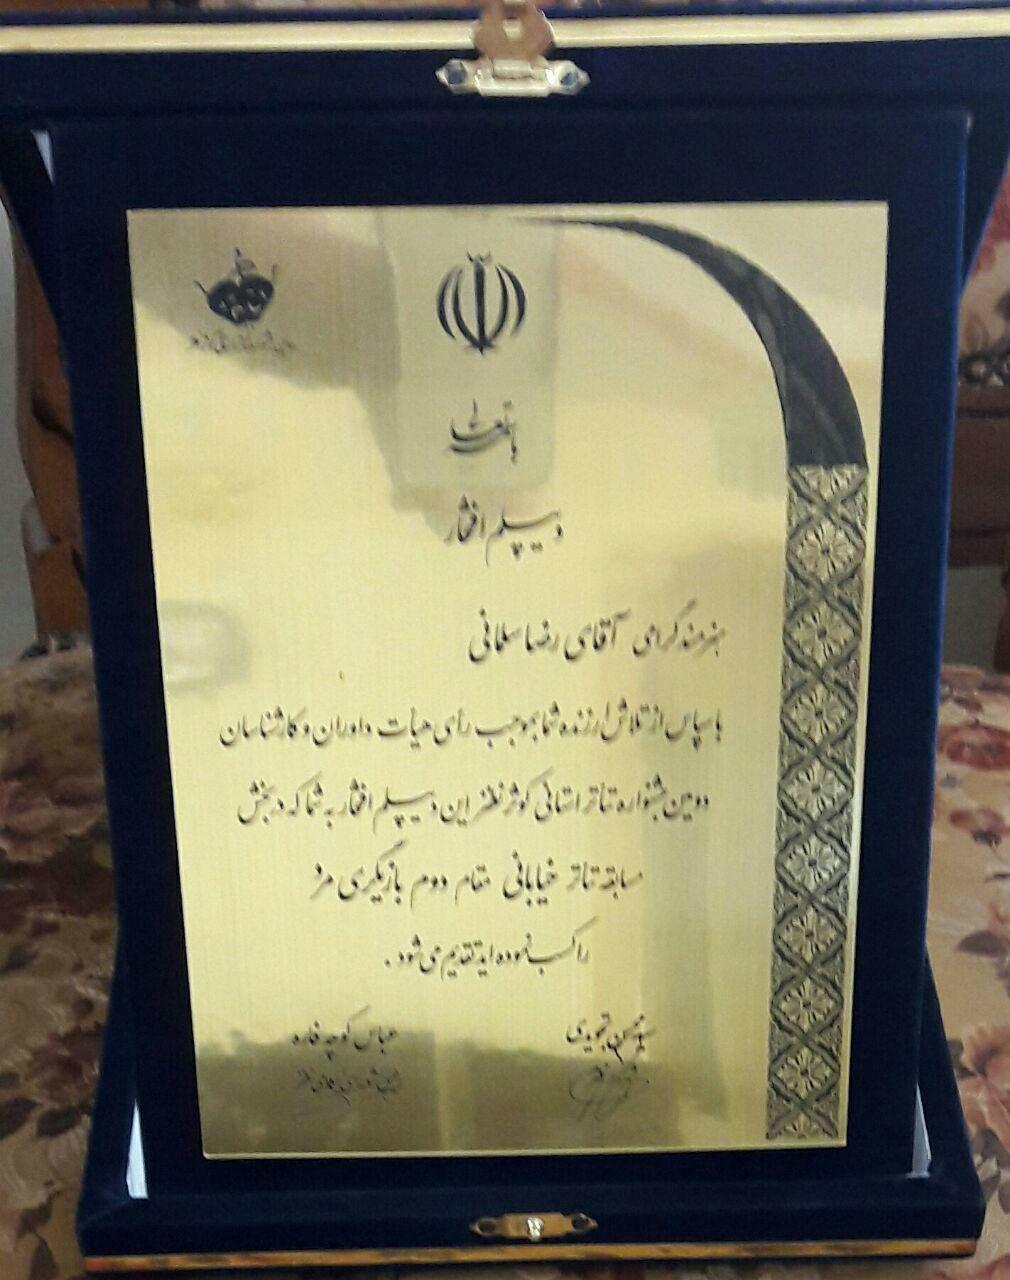 باسمه تعالی
دیپلم افتخار
هنرمند گرامی آقای رضا سلمانی
با سپاس از تلاش ارزنده شما بموجب رأی هیأت داوران و کارشناسان
دومین جشنواره تئاتر استانی کوثر نظنز این دیپلم افتخار به شما که در بخش
مسابقه تئاتر خیابانی مقام دوم بازیگری مرد
را کسب نموده اید تقدیم می شود .
سید محسن تجویدی
عباس کوچه فاره